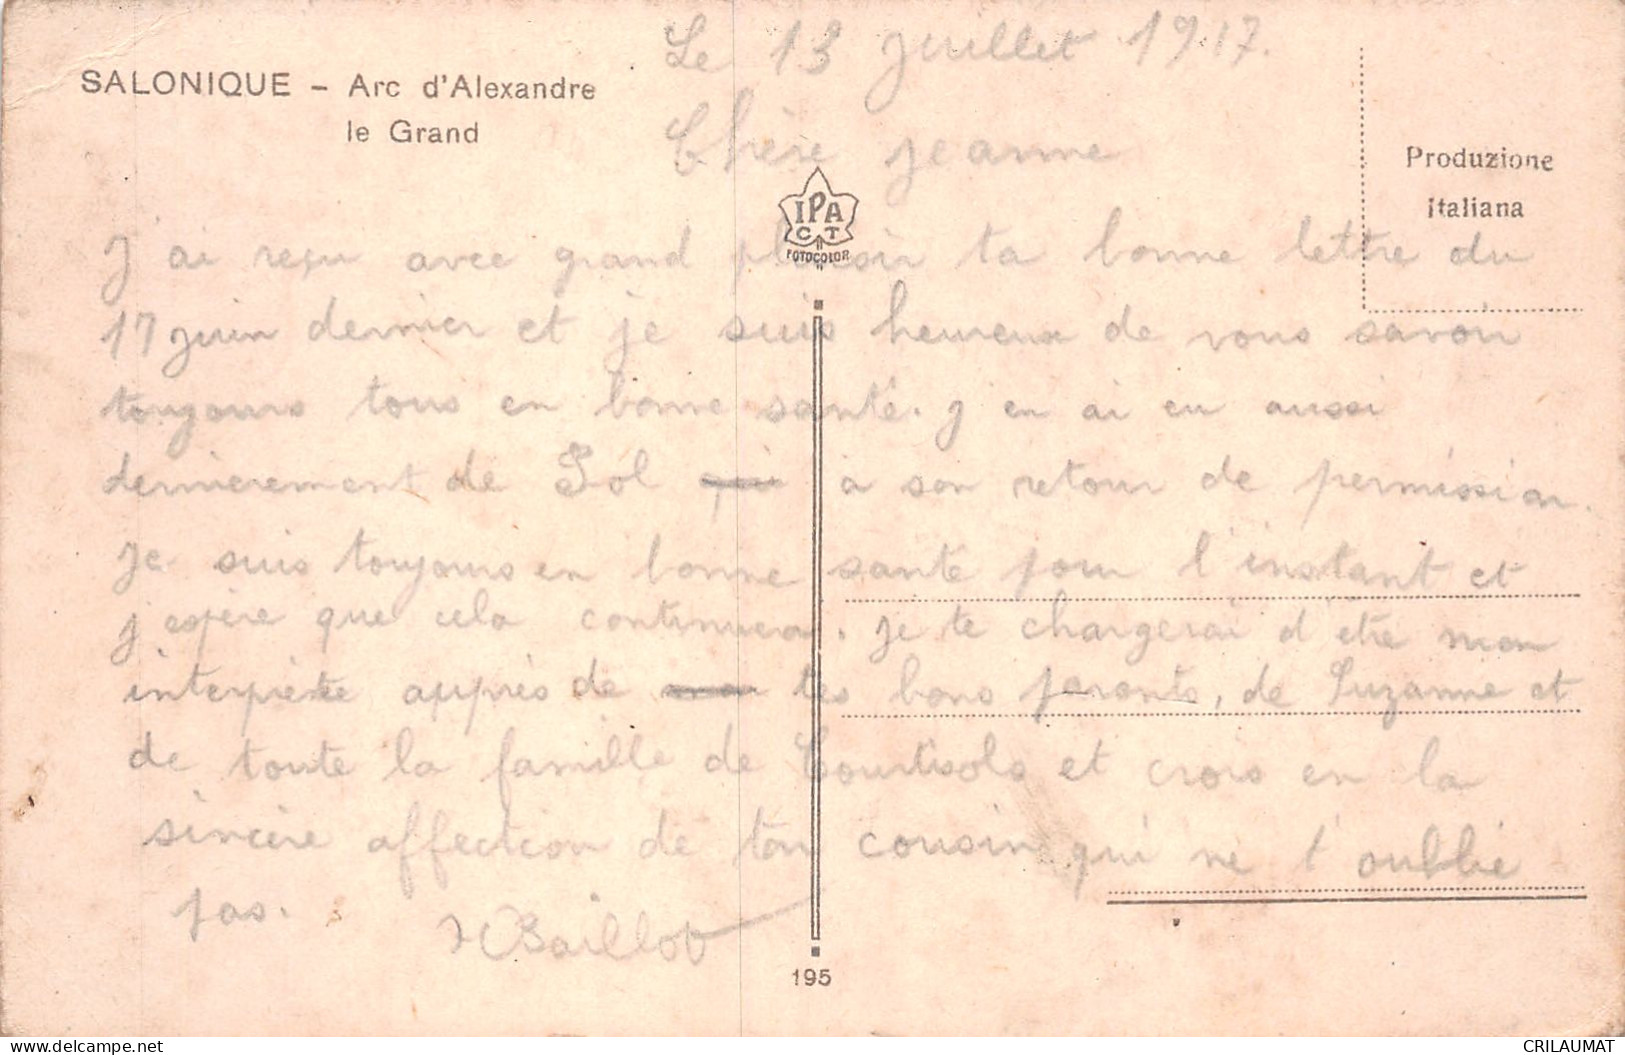 SALONIQUE – Arc d'Alexandre
le Grand
Le 13 juillet 1917.
Chère jeanne
Produzione
Italiana
IPA
CT
FOTOCOLOR
J'ai reçu avec grand plaisir ta bonne lettre du
17 juin dernier et je suis heureux de vous savoir
toujours tous en bonne santé. J en ai eu aussi
dernierement de Sol à son retour de permission.
Je suis toujours en bonne santé pour l'instant et
j'espère que cela continuera. Je te chargerai d'être mon
interprète auprès de tes bons parents, de Suzanne et
de toute la famille de Courtisols et crois en la
sincère affection de ton cousin qui ne t'oublie
pas.
HBaillot
195
CRILAUMAT